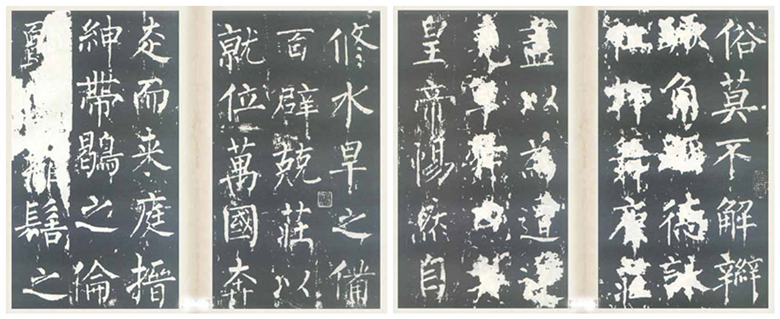 俗莫不解辮
角德
舞康莊
盡以為道
皇帝惕然自
修水旱之備
百辟兢莊以
就位萬國奔
走而来庭搢
紳帶鶡之倫
髻之